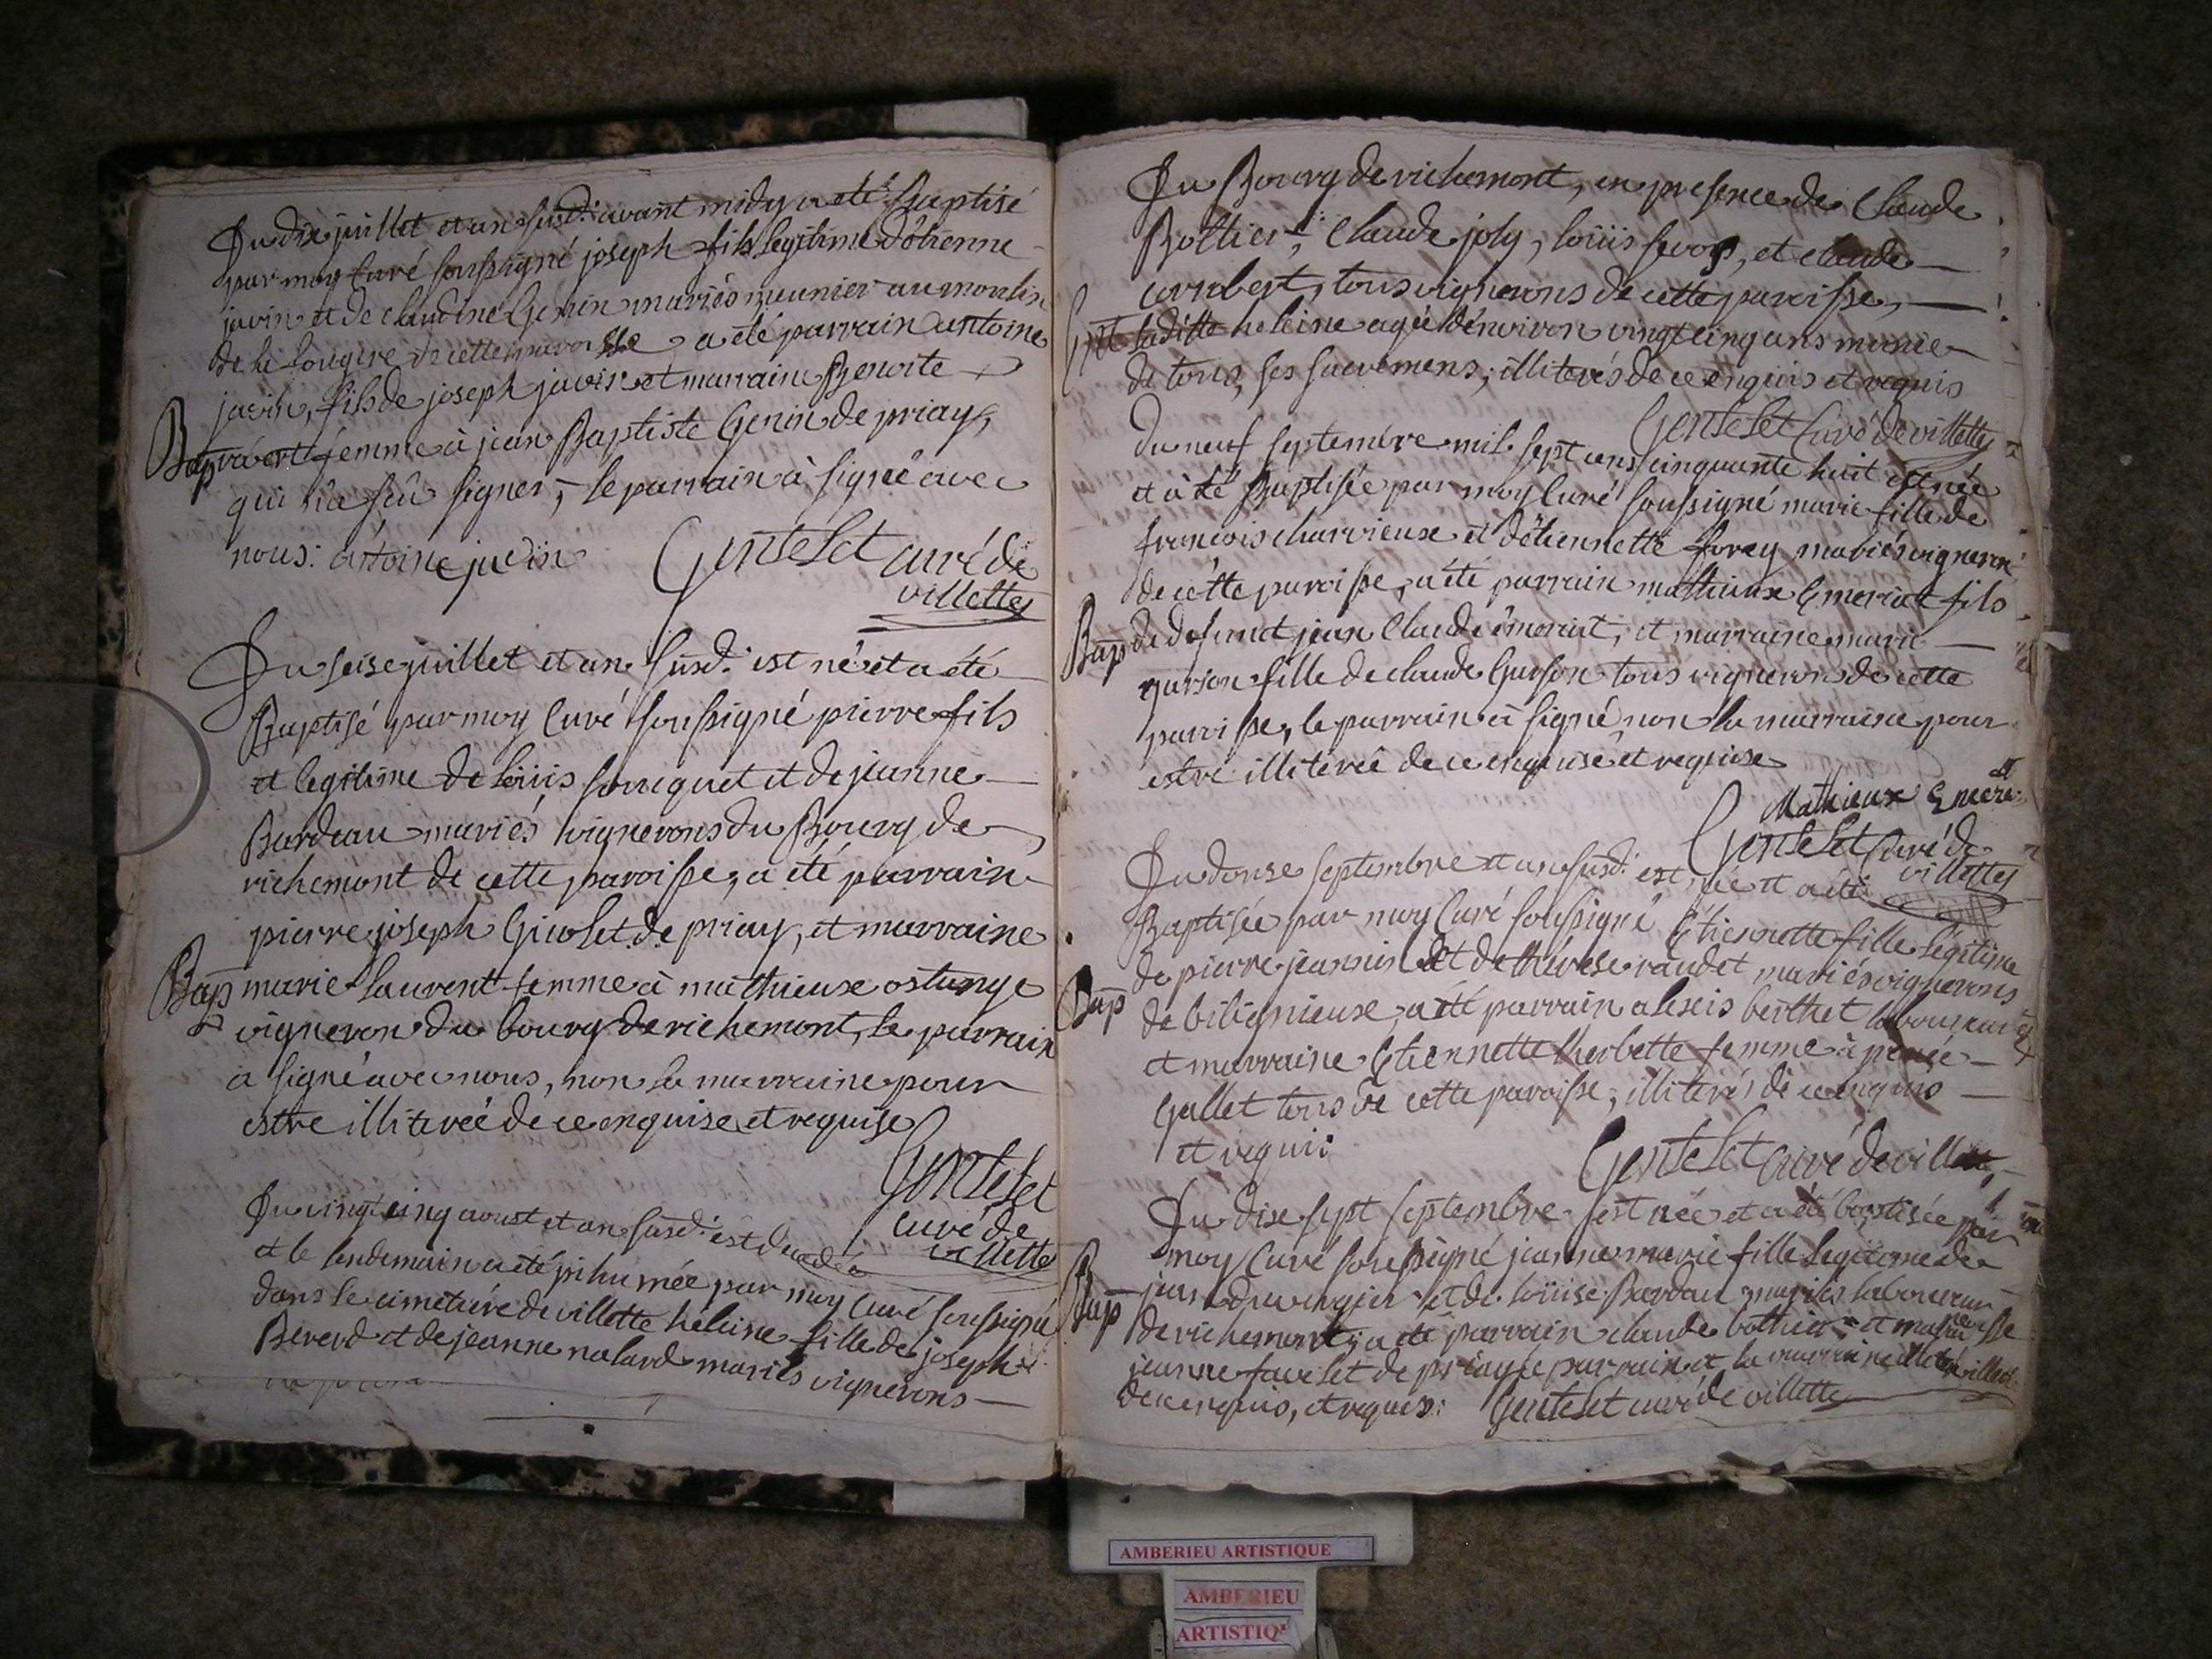 Du dix juillet et an susd: avant midy a eté Baptisé
par moy curé soussigné joseph fils legitime d'êtienne
javin et de claudine Genin mariés meunier au moulin
de la fougere de cette paroisse a eté parrain antoine
javin, fils de joseph javin et marraine Benoite
Bap
femme à jean Baptiste Genin de priay,
qui n'a sçû signer, le parrain à signé avec
nous: antoine javin Gentelet curé de
villette
Du seise juillet et an susd: est né et a eté
Baptisé par moy Curé soussigné pierre fils
et legitime de loüis fouquet et de jeanne
Bardeau mariés vignerons du Bourg de
richemont de cette paroisse, a eté parrain
pierre joseph Giuolet de priay, et marraine
Bap marie laurent femme à mathieux ostange
vigneron du bourg de richemont, le parrain
a signé avec nous, non la marraine pour
estre illiterée de ce enquise et requise
Gentelet
curé de
villette
Du vingt cinq aoust et an susd: est decedée
et le lendemain a eté inhumée par moy curé soussigné
dans le cimetiére de villette héleine fille de joseph
Béverd et de jeanne nalard mariés vignerons
Du Bourg de richemont, en presence de Claude
Bottier, Claude joly, loüis fevox, et claude
curubert, tous vignerons de cette paroisse,
laditte heleine agée d'énviron vingt cinq ans munie
de tous ses sacremens; illiterés de ce enquis et requis
Gentelet Curé de villette
Du neuf septembre mil sept cens cinquante huit est née
et à été Baptisée par moy Curé soussigné marie fille de
francois charvieux et d'êtiennette forey mariés vigneron
de cétte paroisse, a été parrain mathieux Emeriat fils
Bap de defunct jean Claude émeriat, et marraine marie
gurson fille de claude Gurson tous vigneron de cette
paroisse, le parrain à signé non la marraine pour
estre illiterée de ce enquise et requise
Mathieux Emeria
Gentelet Curé de
villette
Du douse septembre et an susd: est née et a été
Baptisée par moy Curé soussigné Etiennette fille légitime
de pierre jeannin et de thérese raudet mariés vignerons
Bap de bilignieux, a été parrain alexis berthet laboureur
et marraine Etiennette therbette femme à
Gallet tous de cette paroisse, illiterés de ce enquis
et requis
Gentelet curé de villette
Du dix sept septembre est née et a été baptisée par
moy Curé soussigné jeanne marie fille legitime de
Bap jean duvergier et de loüise Bardau mariés laboureur
de richemont, a eté parrain claude bothier et marraine
jeanne favelet de priay le parrain et la marraine illiterés
de ce enquis, et requis: Gentelet curé de villette
AMBERIEU ARTISTIQUE
AMBERIEU
ARTISTIQ